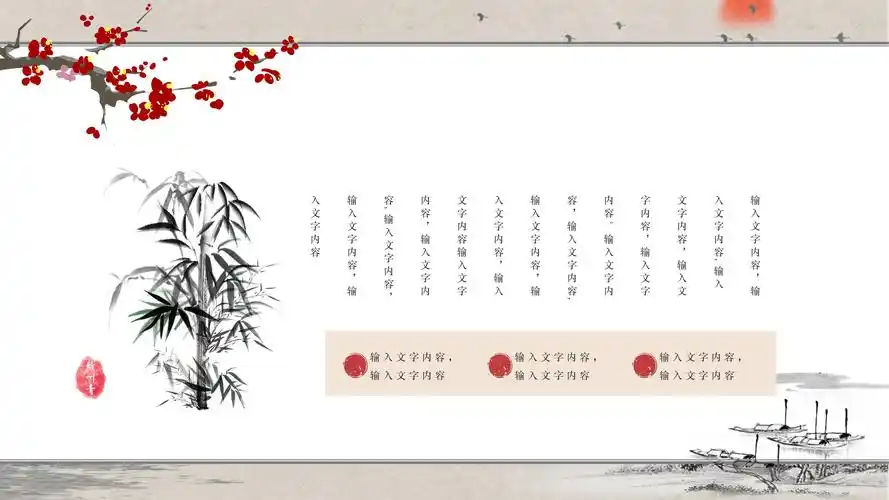 输入文字内容，输
入文字内容，输入
文字内容，输入文
字内容，输入文字
内容，输入文字内
容，输入文字内容，
输入文字内容，输
入文字内容，输入
文字内容输入文字
内容，输入文字内
容，输入文字内容，
输入文字内容，输
入文字内容
输入文字内容，
输入文字内容
输入文字内容，
输入文字内容
输入文字内容，
输入文字内容